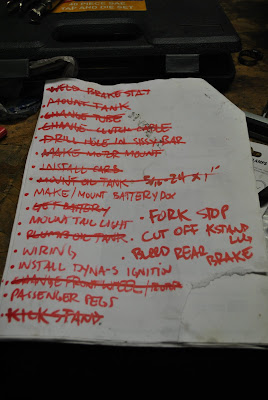 40 PIECE SAE
TAP AND DIE SET
• WELD BRAKE STAY
• MOUNT TANK
• CHANGE TUBE
• CHANGE CLUTCH CABLE
• DRILL HOLE IN SISSY BAR
• MAKE MOTOR MOUNT
• INSTALL CARB
• MOUNT OIL TANK 5/16-24 X 1"
• MAKE/MOUNT BATTERY BOX
• GET BATTERY
• MOUNT TAIL LIGHT
• PLUMB OIL TANK
• WIRING
• INSTALL DYNA-S IGNITION
• CHANGE FRONT WHEEL/
• PASSENGER PEGS
• KICKSTAND
• FORK STOP
• CUT OFF KSTAND
LUG
• BLEED REAR
BRAKE